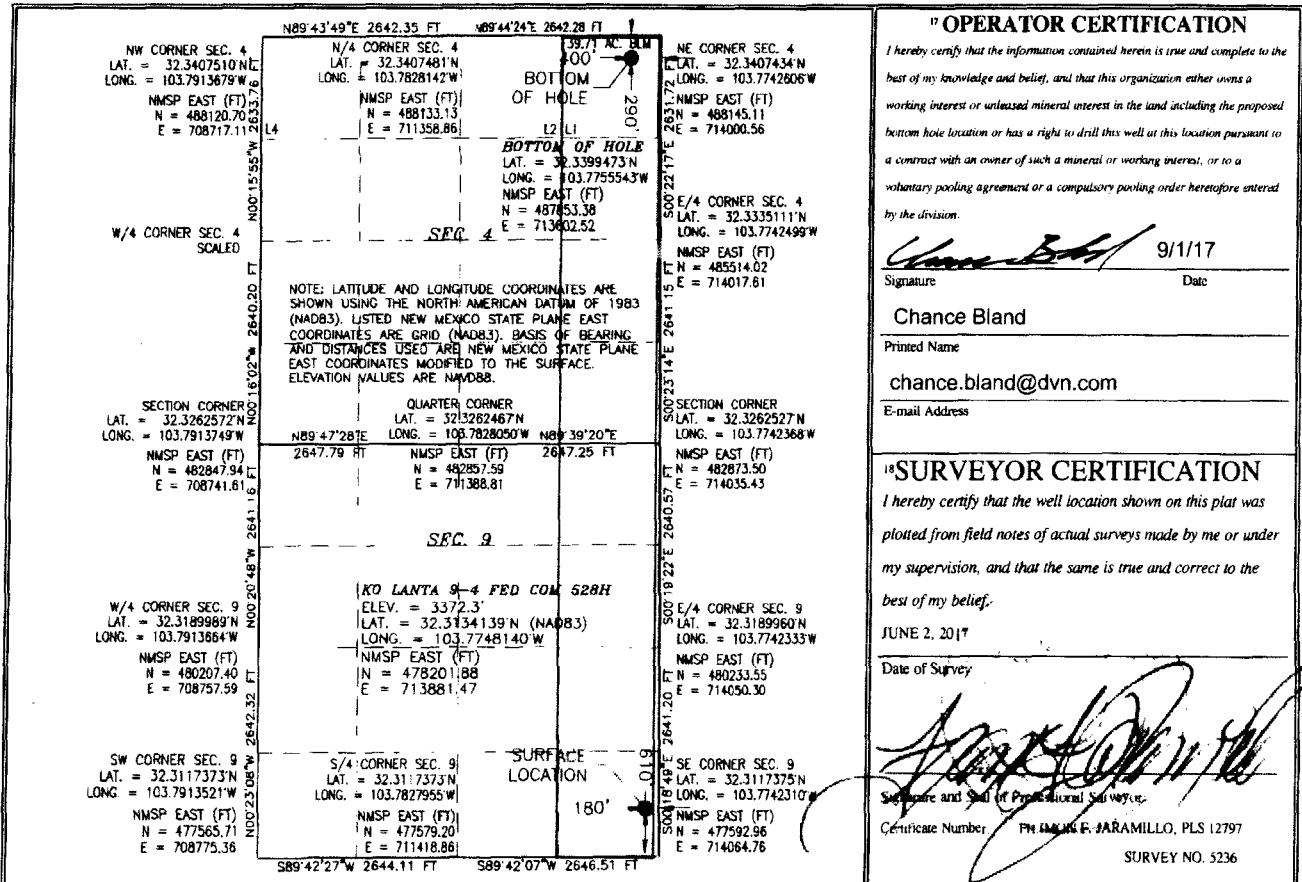 N89°43'49"E 2642.35 FT
N89°44'24"E 2642.28 FT
NW CORNER SEC. 4
LAT. = 32.3407510'N
LONG. = 103.7913679'W
NMSP EAST (FT)
N = 488120.70
E = 708717.11
N/4 CORNER SEC. 4
LAT. = 32.3407481'N
LONG. = 103.7828142'W
NMSP EAST (FT)
N = 488133.13
E = 711358.86
39.71 AC. BLM
400'
BOTTOM
OF HOLE
290'
NE CORNER SEC. 4
LAT. = 32.3407434'N
LONG. = 103.7742606'W
NMSP EAST (FT)
N = 488145.11
E = 714000.56
L4
L2
L1
N00°15'55"W 2633.76 FT
S00°22'17"E 2631.72 FT
BOTTOM OF HOLE
LAT. = 32.3399473'N
LONG. = 103.7755543'W
NMSP EAST (FT)
N = 487853.38
E = 713602.52
W/4 CORNER SEC. 4
SCALED
SEC. 4
E/4 CORNER SEC. 4
LAT. = 32.3335111'N
LONG. = 103.7742499'W
NMSP EAST (FT)
N = 485514.02
E = 714017.61
NOTE: LATITUDE AND LONGITUDE COORDINATES ARE
SHOWN USING THE NORTH AMERICAN DATUM OF 1983
(NAD83). LISTED NEW MEXICO STATE PLANE EAST
COORDINATES ARE GRID (NAD83). BASIS OF BEARING
AND DISTANCES USED ARE NEW MEXICO STATE PLANE
EAST COORDINATES MODIFIED TO THE SURFACE.
ELEVATION VALUES ARE NAVD88.
N00°16'02"W 2640.20 FT
S00°23'14"E 2641.15 FT
SECTION CORNER
LAT. = 32.3262572'N
LONG. = 103.7913749'W
NMSP EAST (FT)
N = 482847.94
E = 708741.61
QUARTER CORNER
LAT. = 32.3262467'N
LONG. = 103.7828050'W
N89°47'28"E
2647.79 FT
N89°39'20"E
2647.25 FT
NMSP EAST (FT)
N = 482857.59
E = 711388.81
SECTION CORNER
LAT. = 32.3262527'N
LONG. = 103.7742368'W
NMSP EAST (FT)
N = 482873.50
E = 714035.43
N00°20'48"W 2641.16 FT
S00°19'22"E 2640.57 FT
SEC. 9
W/4 CORNER SEC. 9
LAT. = 32.3189989'N
LONG. = 103.7913664'W
NMSP EAST (FT)
N = 480207.40
E = 708757.59
KO LANTA 9-4 FED COM 528H
ELEV. = 3372.3'
LAT. = 32.3134139'N (NAD83)
LONG. = 103.7748140'W
NMSP EAST (FT)
N = 478201.88
E = 713881.47
E/4 CORNER SEC. 9
LAT. = 32.3189960'N
LONG. = 103.7742333'W
NMSP EAST (FT)
N = 480233.55
E = 714050.30
N00°23'08"W 2642.32 FT
S00°18'49"E 2641.20 FT
SW CORNER SEC. 9
LAT. = 32.3117373'N
LONG. = 103.7913521'W
NMSP EAST (FT)
N = 477565.71
E = 708775.36
S/4 CORNER SEC. 9
LAT. = 32.3117373'N
LONG. = 103.7827955'W
NMSP EAST (FT)
N = 477579.20
E = 711418.86
SURFACE
LOCATION
180'
610'
SE CORNER SEC. 9
LAT. = 32.3117375'N
LONG. = 103.7742310'W
NMSP EAST (FT)
N = 477592.96
E = 714064.76
S89°42'27"W 2644.11 FT
S89°42'07"W 2646.51 FT
17 OPERATOR CERTIFICATION
I hereby certify that the information contained herein is true and complete to the
best of my knowledge and belief, and that this organization either owns a
working interest or unleased mineral interest in the land including the proposed
bottom hole location or has a right to drill this well at this location pursuant to
a contract with an owner of such a mineral or working interest, or to a
voluntary pooling agreement or a compulsory pooling order heretofore entered
by the division.
9/1/17
Signature Date
Chance Bland
Printed Name
chance.bland@dvn.com
E-mail Address
18 SURVEYOR CERTIFICATION
I hereby certify that the well location shown on this plat was
plotted from field notes of actual surveys made by me or under
my supervision, and that the same is true and correct to the
best of my belief.
JUNE 2, 2017
Date of Survey
Signature and Seal of Professional Surveyor
Certificate Number F. JARAMILLO, PLS 12797
SURVEY NO. 5236